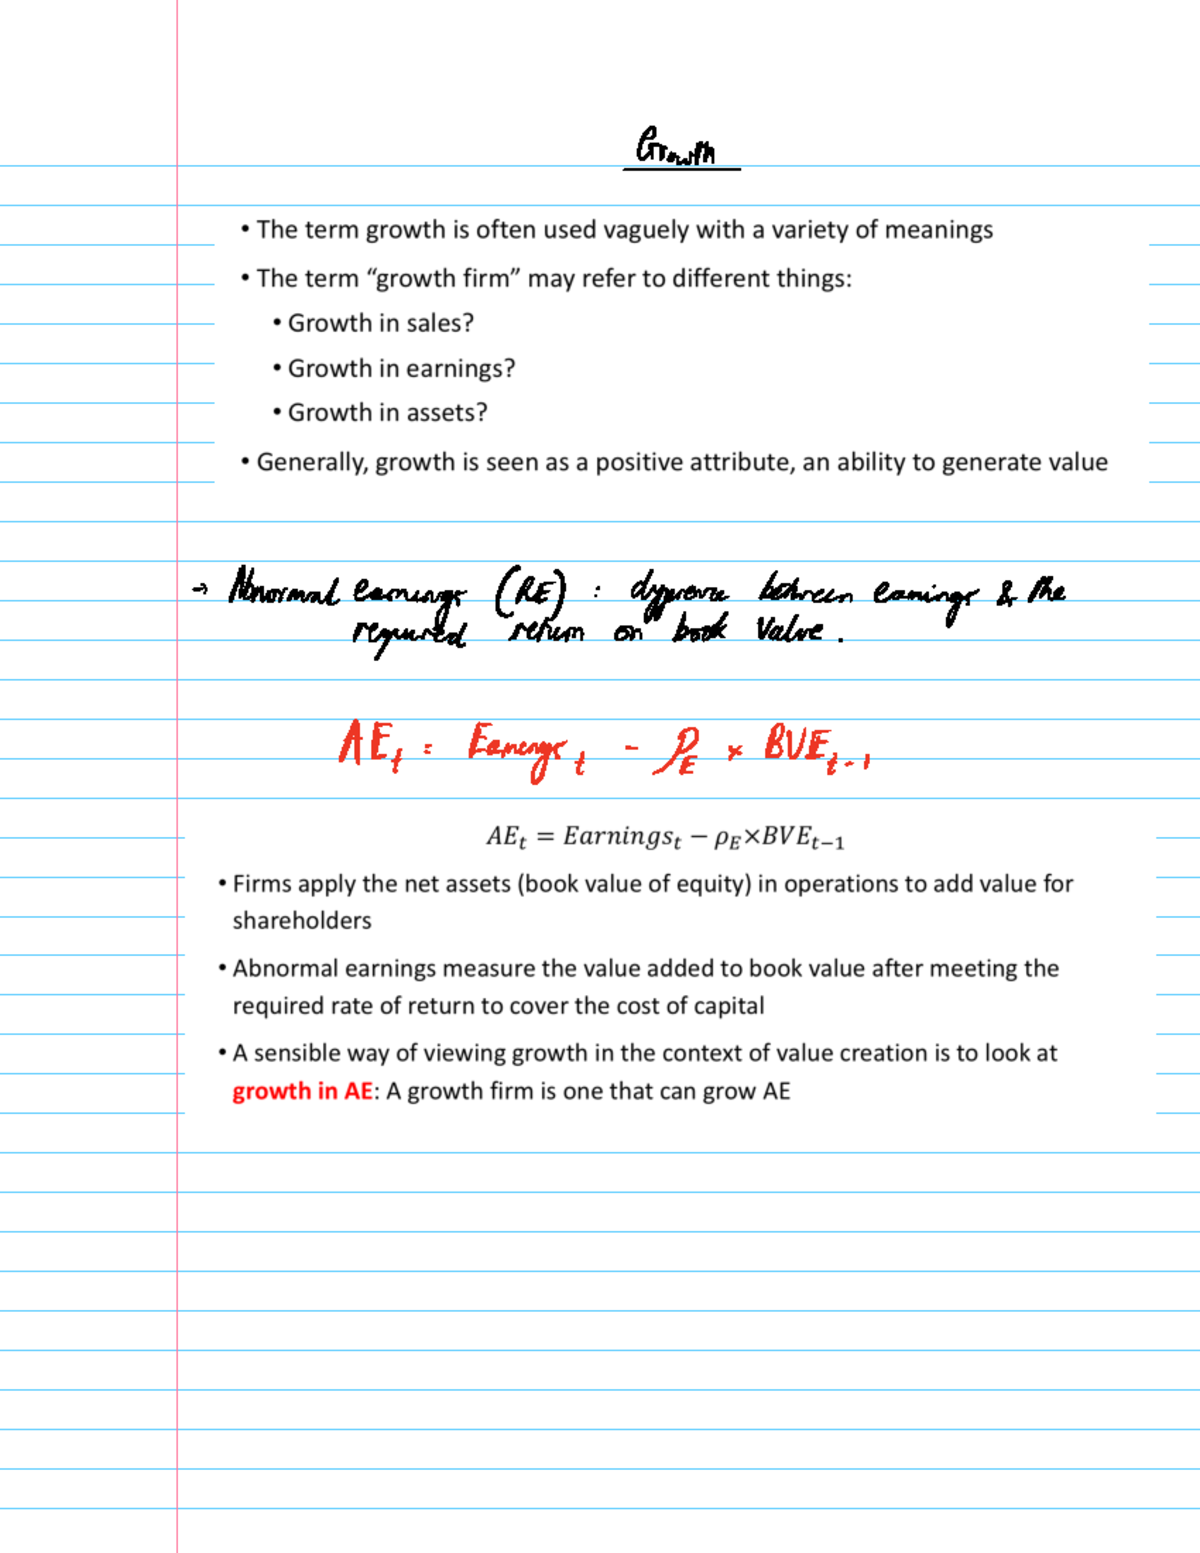 Growth
• The term growth is often used vaguely with a variety of meanings
• The term “growth firm” may refer to different things:
• Growth in sales?
• Growth in earnings?
• Growth in assets?
• Generally, growth is seen as a positive attribute, an ability to generate value
→ Abnormal earnings (RE) : difference between earnings & the
required return on book value.
AEt = Earningst - ρE × BVEt-1
AEt = Earningst − ρE×BVEt−1
• Firms apply the net assets (book value of equity) in operations to add value for
shareholders
• Abnormal earnings measure the value added to book value after meeting the
required rate of return to cover the cost of capital
• A sensible way of viewing growth in the context of value creation is to look at
growth in AE: A growth firm is one that can grow AE